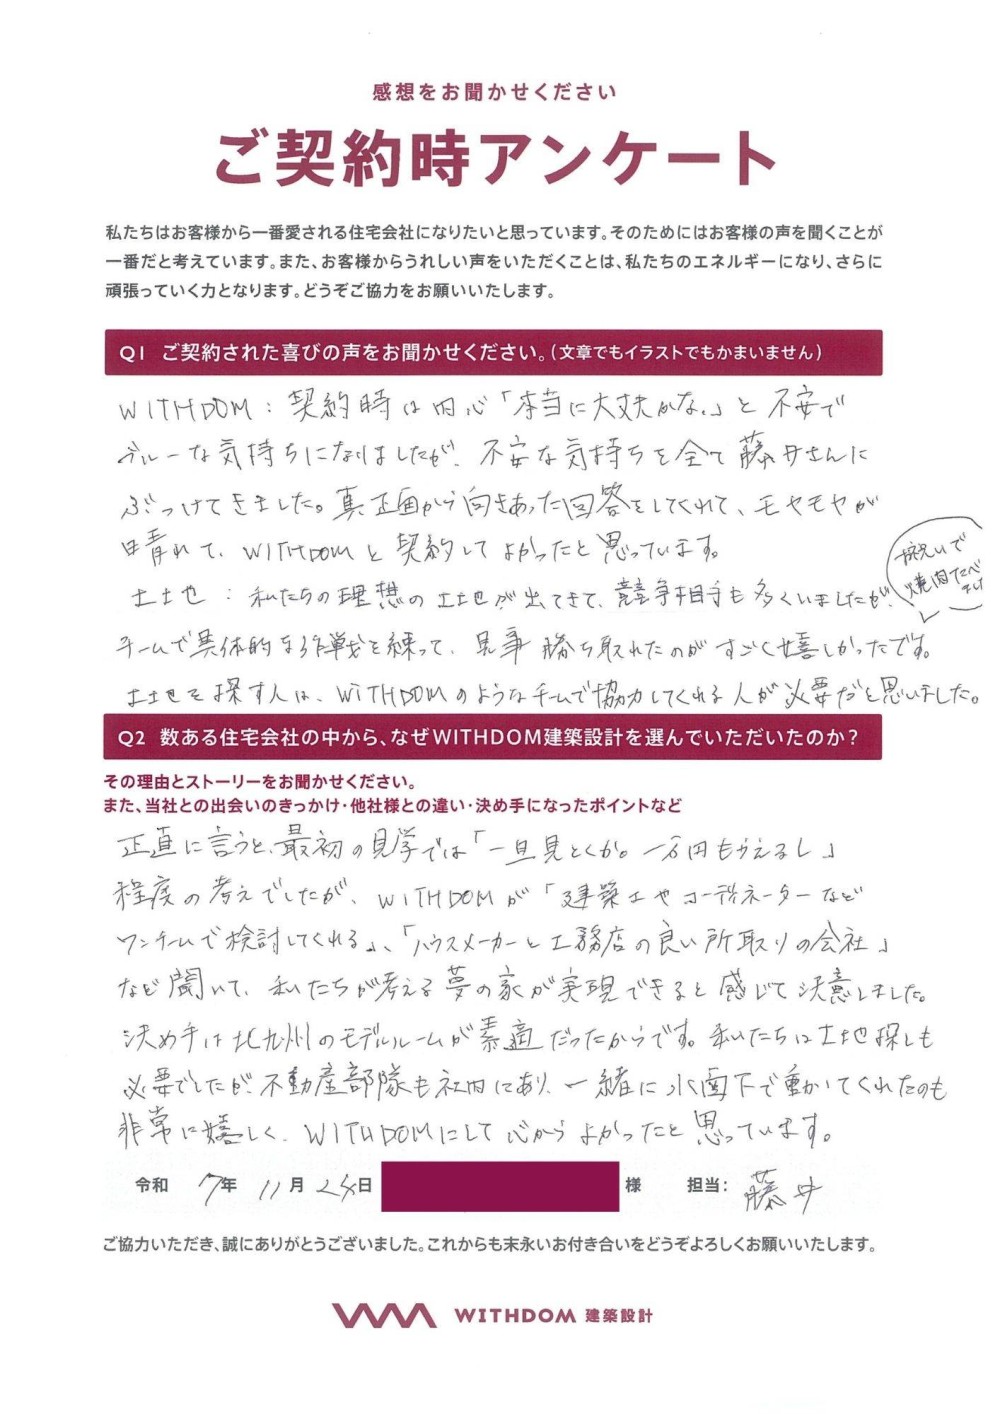 感想をお聞かせください
ご契約時アンケート
私たちはお客様から一番愛される住宅会社になりたいと思っています。そのためにはお客様の声を聞くことが
一番だと考えています。また、お客様からうれしい声をいただくことは、私たちのエネルギーになり、さらに
頑張っていく力となります。どうぞご協力をお願いいたします。
Q1 ご契約された喜びの声をお聞かせください。（文章でもイラストでもかまいません）
WITHDOM：契約時は内心「本当に大丈夫かな。」と不安で
ブルーな気持ちになりましたが、不安な気持ちを全て藤井さんに
ぶつけてきました。真正面から向きあった回答をしてくれて、モヤモヤが
晴れて、WITHDOMと契約してよかったと思っています。
土地：私たちの理想の土地が出てきて、競争相手も多くいましたが、
祝いで
焼肉たべ
チームで具体的な作戦を練って、見事勝ち取れたのがすごく嬉しかったです。
土地を探す人は、WITHDOMのようなチームで協力してくれる人が必要だと思いました。
Q2 数ある住宅会社の中から、なぜWITHDOM建築設計を選んでいただいたのか？
その理由とストーリーをお聞かせください。
また、当社との出会いのきっかけ・他社様との違い・決め手になったポイントなど
正直に言うと、最初の見学では「一旦見とくか。一万円もらえるし」
程度の考えでしたが、WITHDOMが「建築士やコーディネーターなど
ワンチームで検討してくれる」、「ハウスメーカーと工務店の良い所取りの会社」
など聞いて、私たちが考える夢の家が実現できると感じて決意しました。
決め手は北九州のモデルルームが素適だったからです。私たちは土地探しも
必要でしたが、不動産部隊も社内にあり、一緒に水面下で動いてくれたのも
非常に嬉しく、WITHDOMにして心からよかったと思っています。
令和 7年 11月 24日 様 担当：藤井
ご協力いただき、誠にありがとうございました。これからも末永いお付き合いをどうぞよろしくお願いいたします。
WITHDOM 建築設計